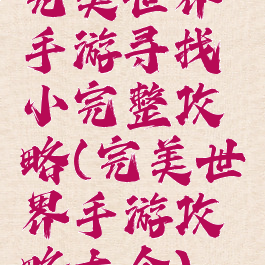 完美世界
手游寻找
小完整攻
略(完美世
界手游攻
略大全)